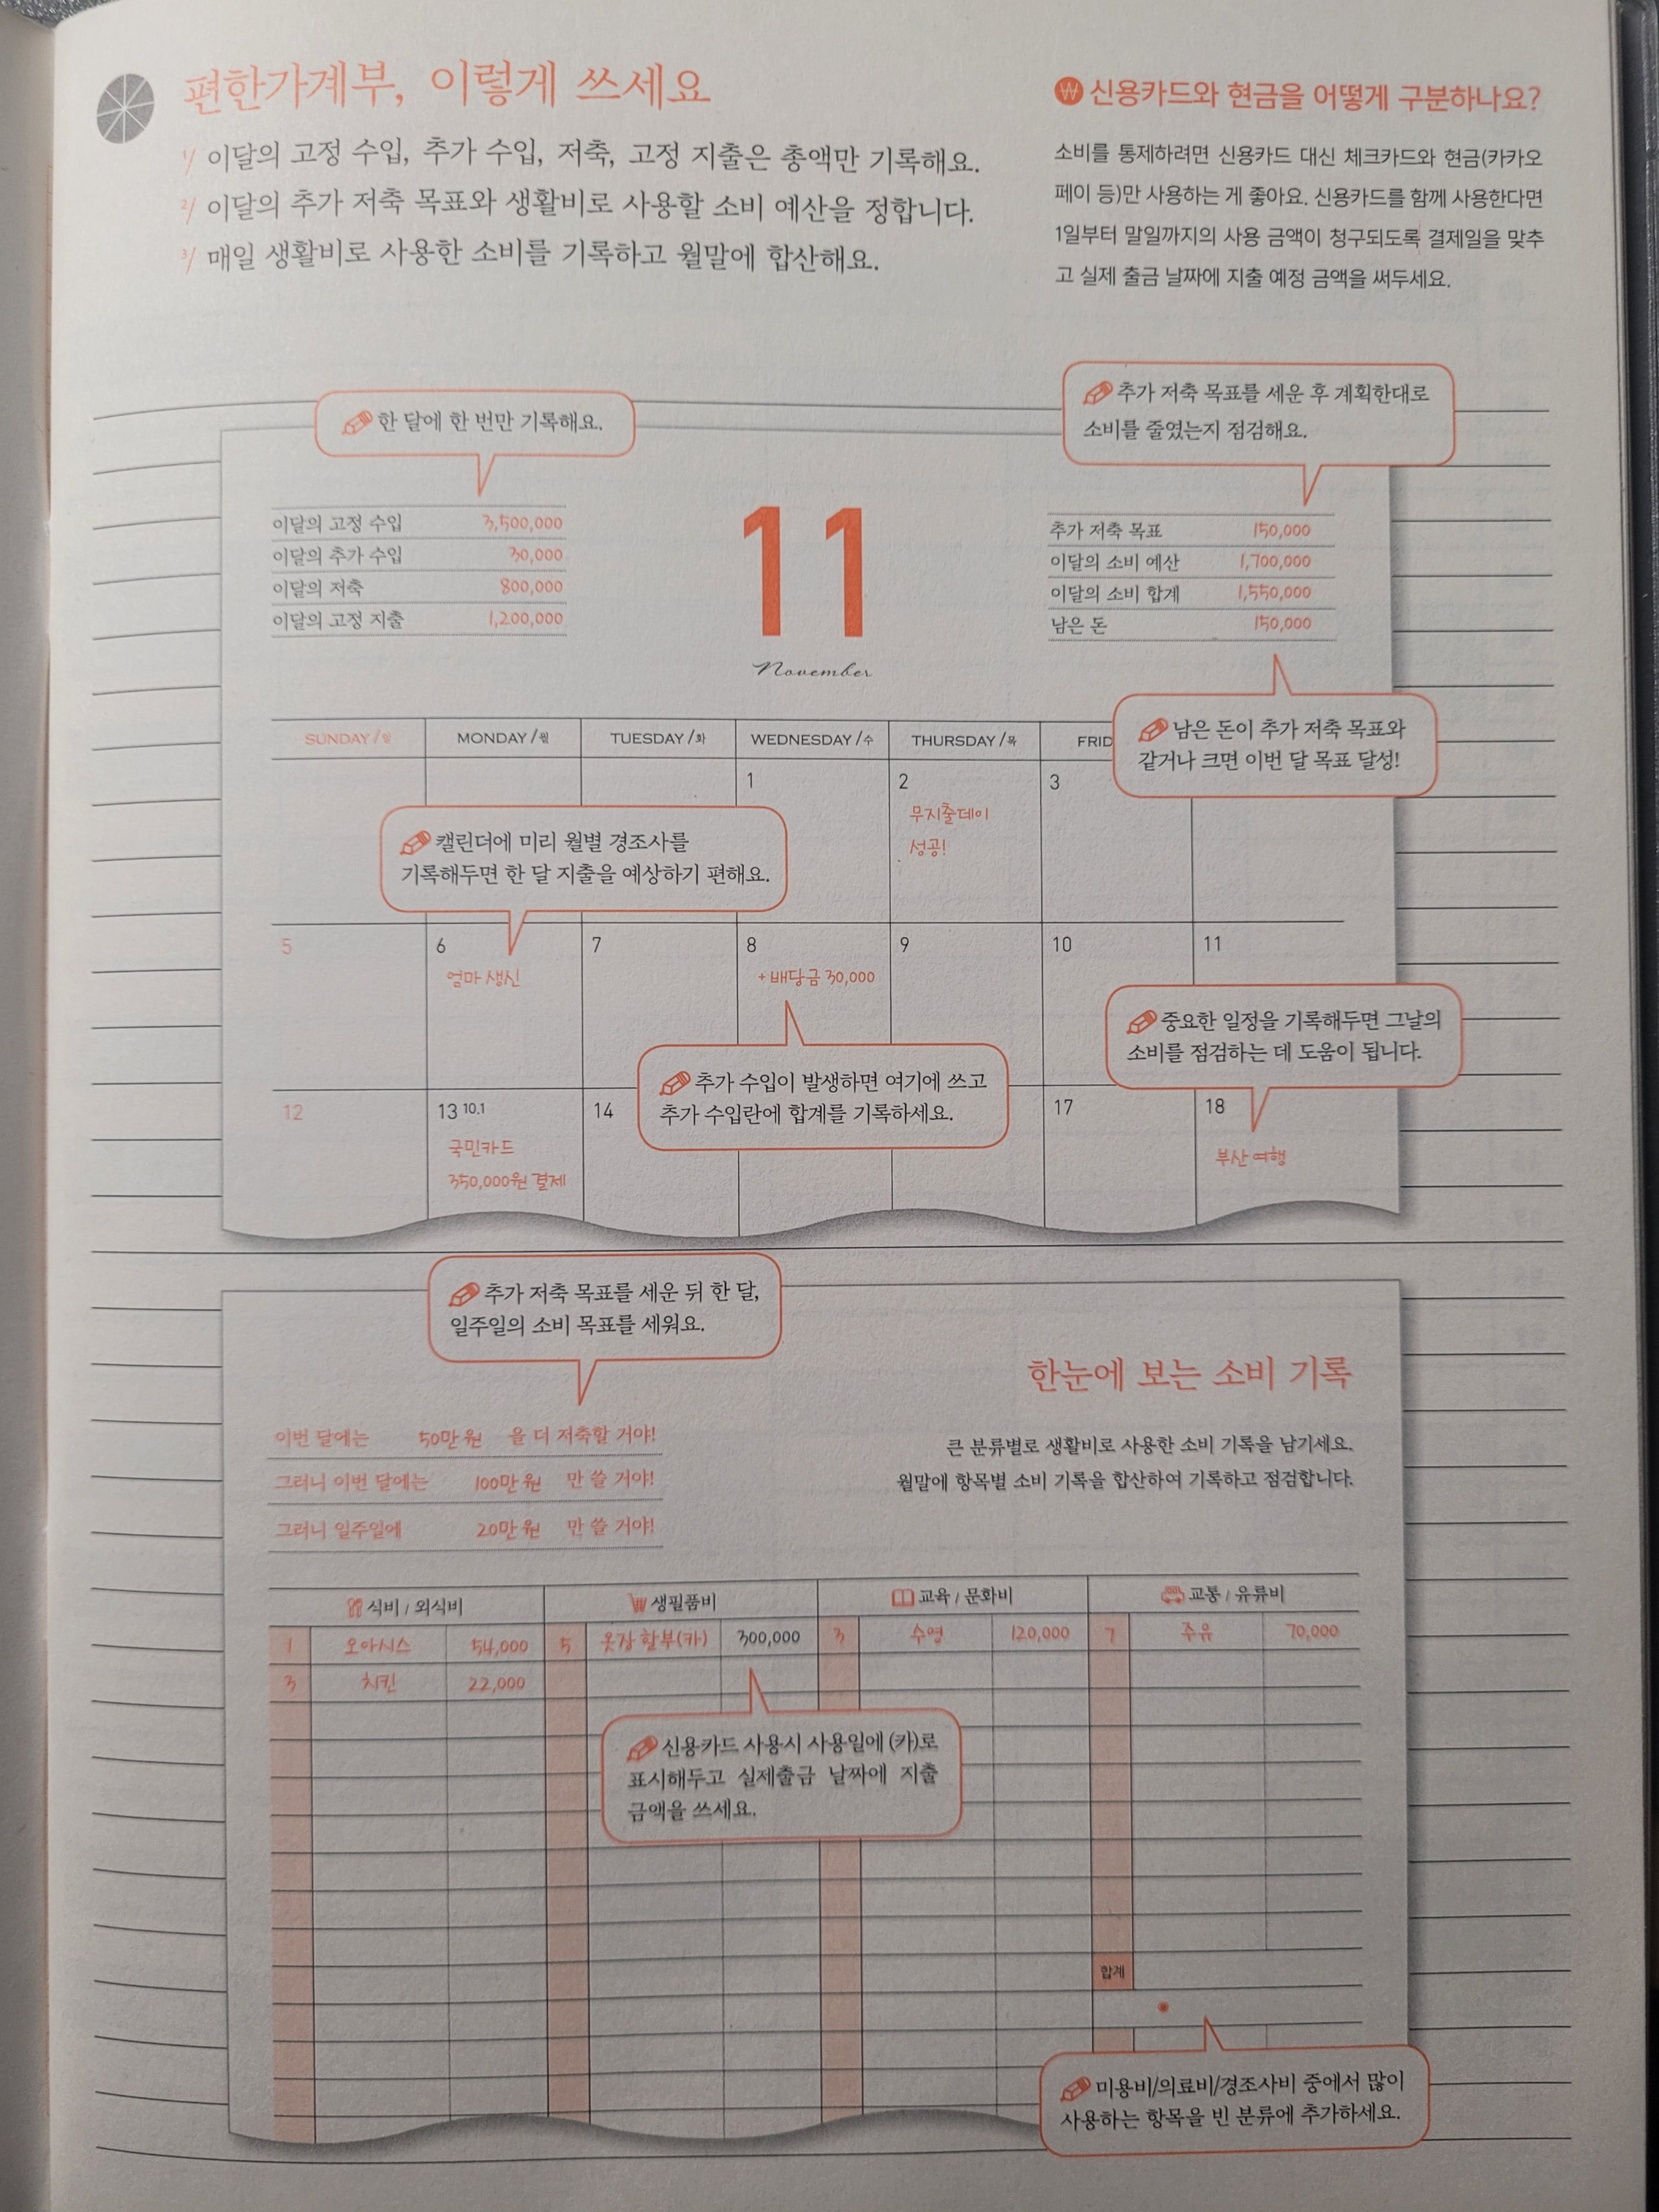 편한가계부, 이렇게 쓰세요
1/ 이달의 고정 수입, 추가 수입, 저축, 고정 지출은 총액만 기록해요.
2/ 이달의 추가 저축 목표와 생활비로 사용할 소비 예산을 정합니다.
3/ 매일 생활비로 사용한 소비를 기록하고 월말에 합산해요.
₩ 신용카드와 현금을 어떻게 구분하나요?
소비를 통제하려면 신용카드 대신 체크카드와 현금(카카오
페이 등)만 사용하는 게 좋아요. 신용카드를 함께 사용한다면
1일부터 말일까지의 사용 금액이 청구되도록 결제일을 맞추
고 실제 출금 날짜에 지출 예정 금액을 써두세요.
한 달에 한 번만 기록해요.
추가 저축 목표를 세운 후 계획한대로
소비를 줄였는지 점검해요.
이달의 고정 수입 3,500,000
이달의 추가 수입 30,000
이달의 저축 800,000
이달의 고정 지출 1,200,000
11
November
추가 저축 목표 150,000
이달의 소비 예산 1,700,000
이달의 소비 합계 1,550,000
남은 돈 150,000
남은 돈이 추가 저축 목표와
같거나 크면 이번 달 목표 달성!
SUNDAY/일 MONDAY/월 TUESDAY/화 WEDNESDAY/수 THURSDAY/목 FRID
1 2 3
무지출데이
성공!
캘린더에 미리 월별 경조사를
기록해두면 한 달 지출을 예상하기 편해요.
5 6 7 8 9 10 11
엄마 생신
+ 배당금 30,000
중요한 일정을 기록해두면 그날의
소비를 점검하는 데 도움이 됩니다.
추가 수입이 발생하면 여기에 쓰고
추가 수입란에 합계를 기록하세요.
12 13 10.1 14 17 18
국민카드
350,000원 결제
부산 여행
추가 저축 목표를 세운 뒤 한 달,
일주일의 소비 목표를 세워요.
한눈에 보는 소비 기록
큰 분류별로 생활비로 사용한 소비 기록을 남기세요.
월말에 항목별 소비 기록을 합산하여 기록하고 점검합니다.
이번 달에는 50만 원 을 더 저축할 거야!
그러니 이번 달에는 100만 원 만 쓸 거야!
그러니 일주일에 20만 원 만 쓸 거야!
식비 / 외식비 생필품비 교육 / 문화비 교통 / 유류비
1 오아시스 54,000 5 옷장 할부(카) 300,000 3 수영 120,000 7 주유 70,000
3 치킨 22,000
신용카드 사용시 사용일에 (카)로
표시해두고 실제출금 날짜에 지출
금액을 쓰세요.
합계
미용비/의료비/경조사비 중에서 많이
사용하는 항목을 빈 분류에 추가하세요.